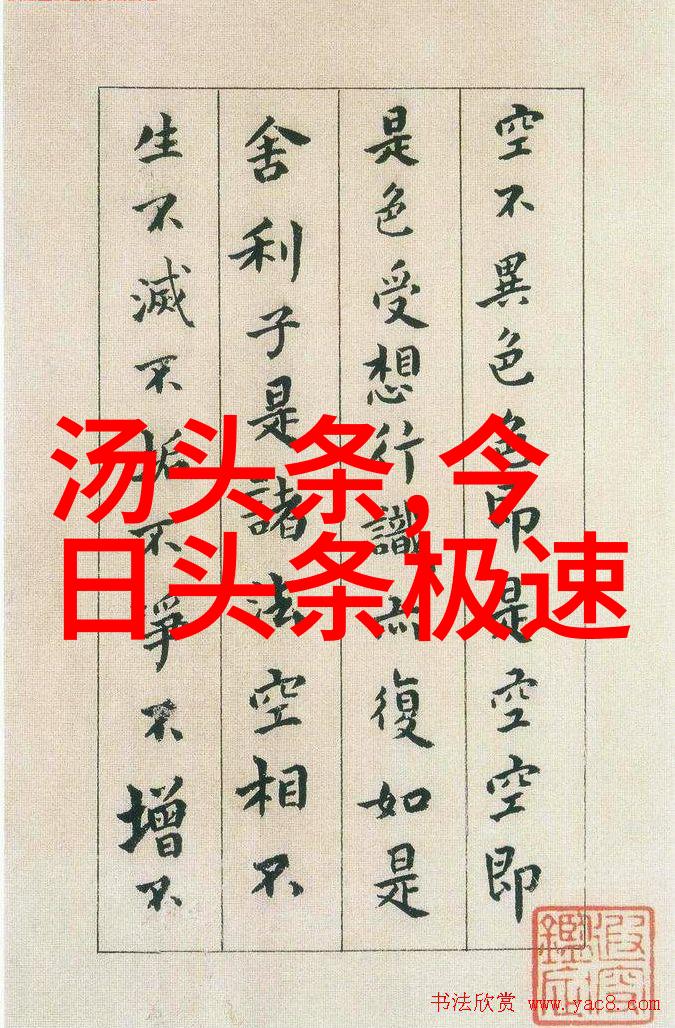 空不異色色即是空空即
是色受想行識亦復如是
舍利子是諸法空相不
生不滅不垢不淨不增不
汤头条,今
日头条极速
书法欣赏 www.yac8.com